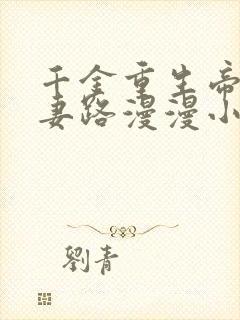 千金重生帝
妻路漫漫小
劉青